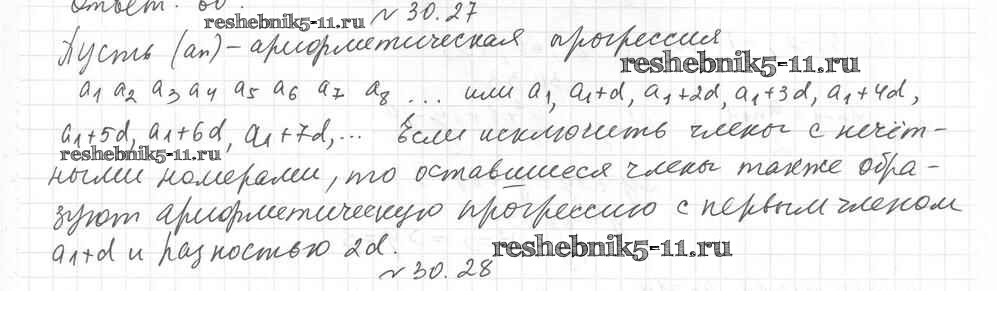 Ответ: 60.
reshebnik5-11.ru № 30.27
Пусть (an) - арифметическая прогрессия
reshebnik5-11.ru
a1 a2 a3 a4 a5 a6 a7 a8 ... или a1, a1+d, a1+2d, a1+3d, a1+4d,
a1+5d, a1+6d, a1+7d, ... Если исключить члены с нечёт-
reshebnik5-11.ru
ными номерами, то оставшиеся члены также обра-
зуют арифметическую прогрессию с первым членом
a1+d и разностью 2d. reshebnik5-11.ru
№ 30.28